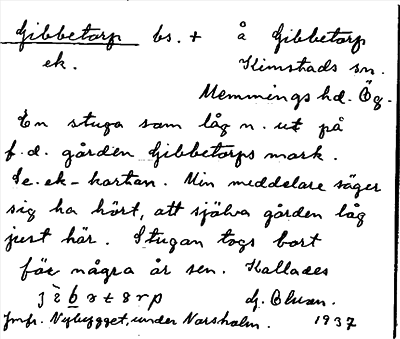 Gibbetorp bs. + å Gibbetorp
ek. Kimstads sn.
Memmings hd. Ög.
En stuga som låg n. ut på
f.d. gården Gibbetorps mark.
Se. ek-kartan. Min meddelare säger
sig ha hört, att själva gården låg
just här. Stugan togs bort
för några år sen. Kallades
dj. Oluan.
Jmfr. Nybygget, under Norsholm. 1937